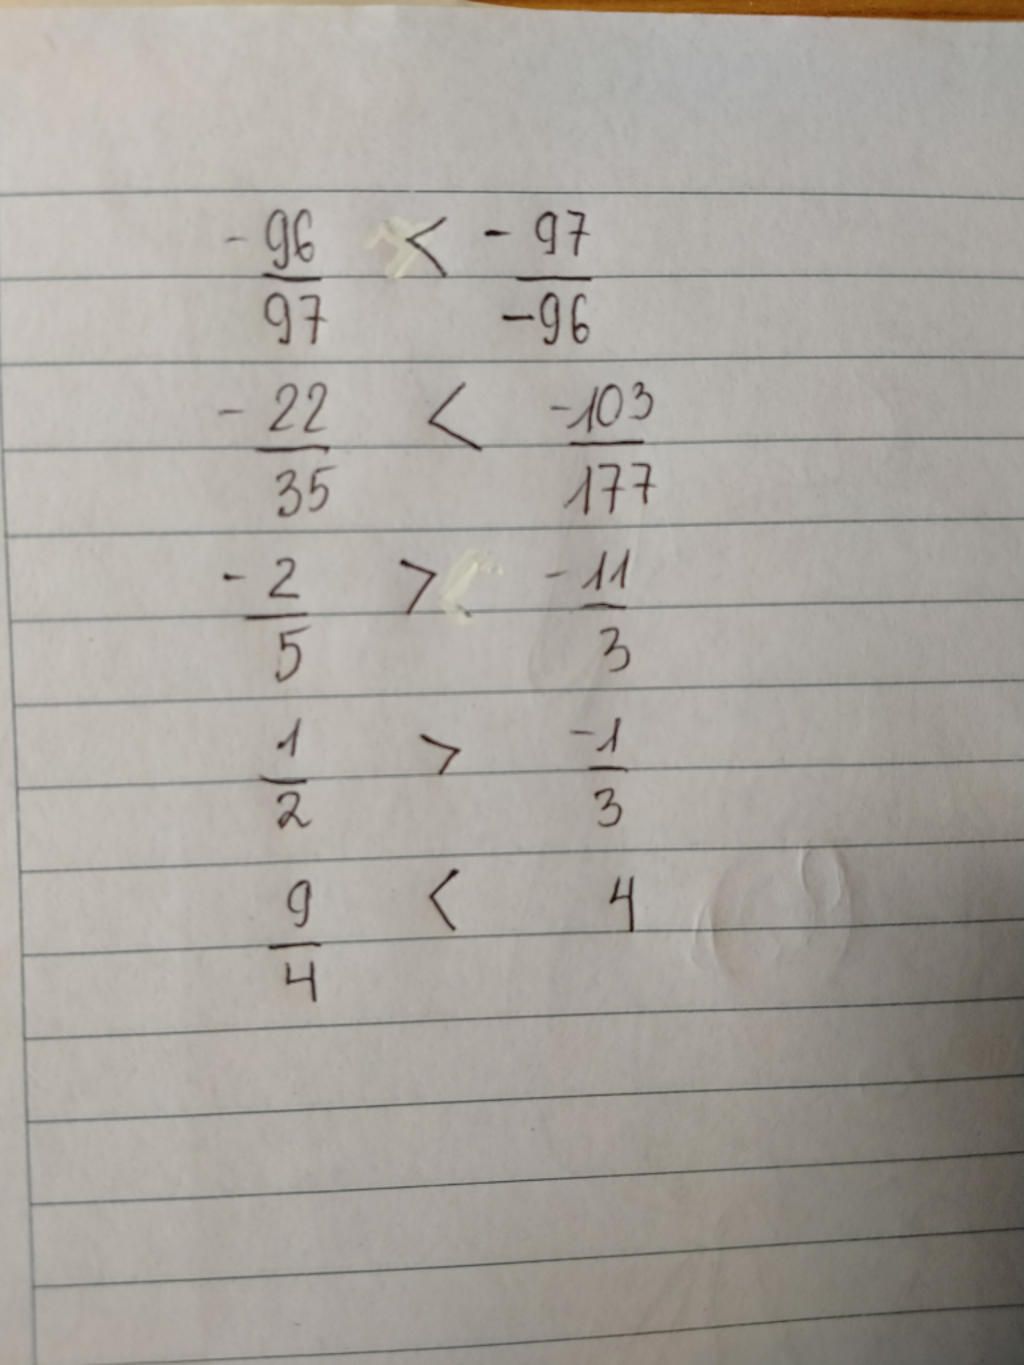 -96/97 < -97/-96
-22/35 < -103/177
-2/5 > -11/3
1/2 > -1/3
9/4 < 4